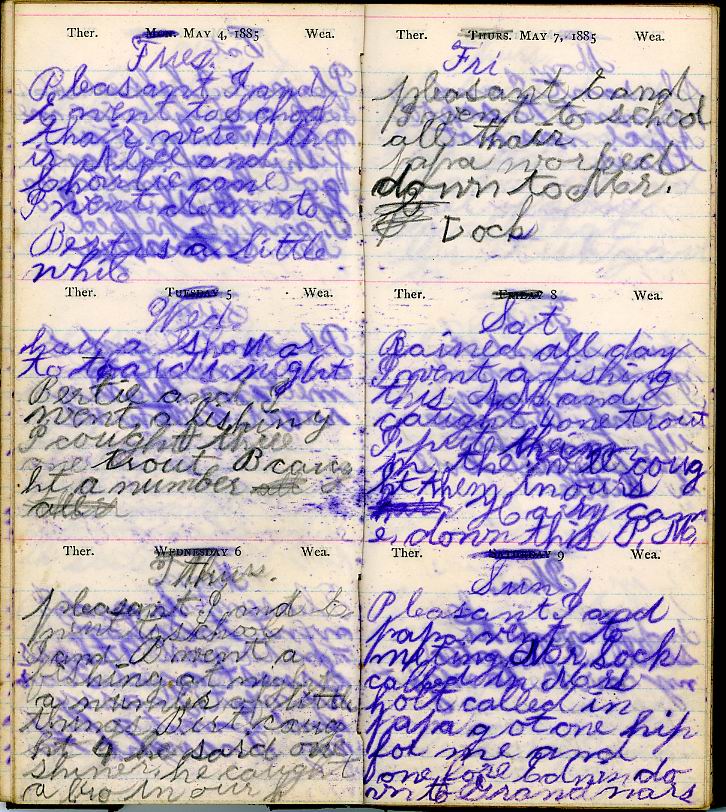 Ther. Mon. May 4, 1885 Wea.
Tues.
Pleasant I and
E went to school
thair were 11 tho
ir and
Charlie came
I went down to
Berties a little
while
Ther. Tuesday 5 Wea.
Wed.
had a shouar
to toard night
Bertie and I
went a fishiny
I cought three
one trout B caug
ht a number
Ther. Wednesday 6 Wea.
Thurs.
pleasant I and E
went to school
I and B went a
fishing at
a number of little
things Bert caug
ht 4 he said one
shiner he caught
a in our
Ther. Thurs. May 7, 1885 Wea.
Fri
pleasant E and
I went to school
all thair
papa worked
down to Mr.
Dock
Ther. Friday 8 Wea.
Sat
Rained all day
I went a fishing
this and
caught one trout
I put them
in the well coug
ht them in ours
Harry cam
e down this P.M.
Ther. Saturday 9 Wea.
Sun
Pleasant I and
papa went to
meting Mor Sock
called in Mrs
holt called in
papa got one hip
for me and
one for Ed